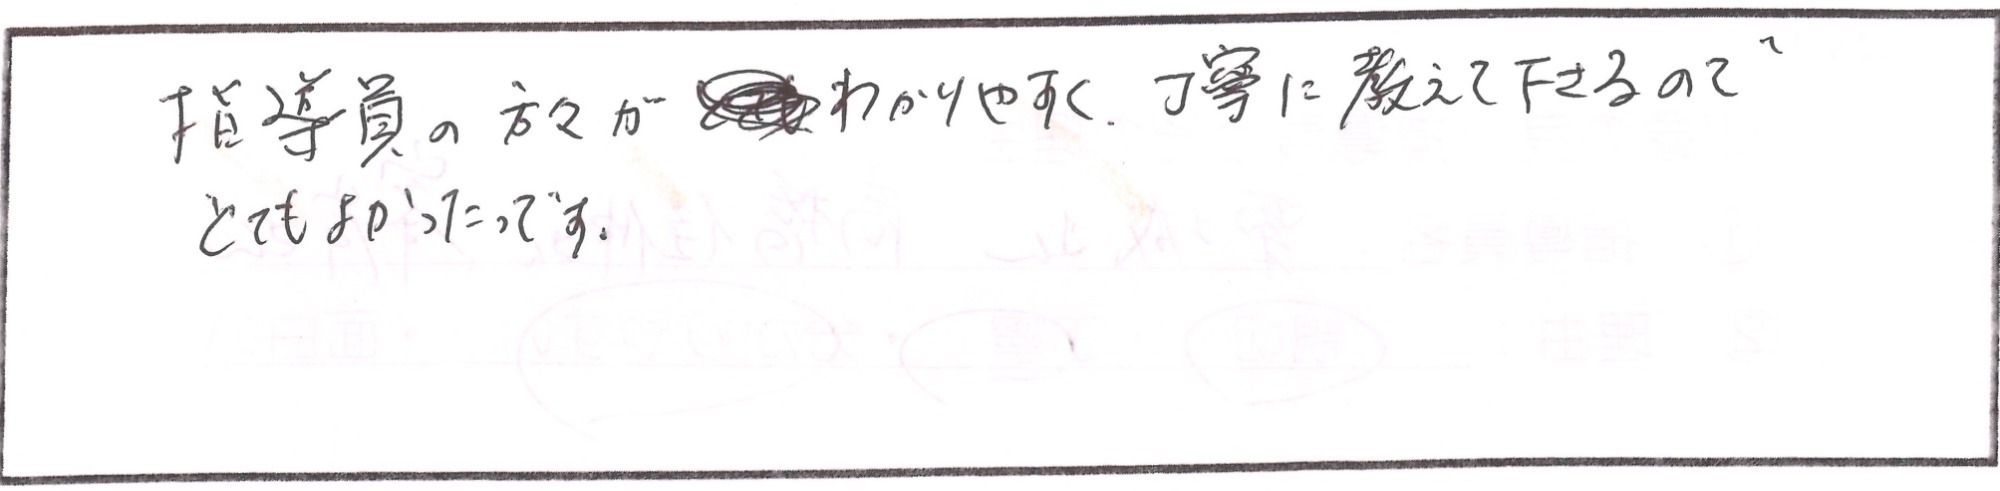 指導員の方々がわかりやすく、丁寧に教えて下さるので
とてもよかったです。